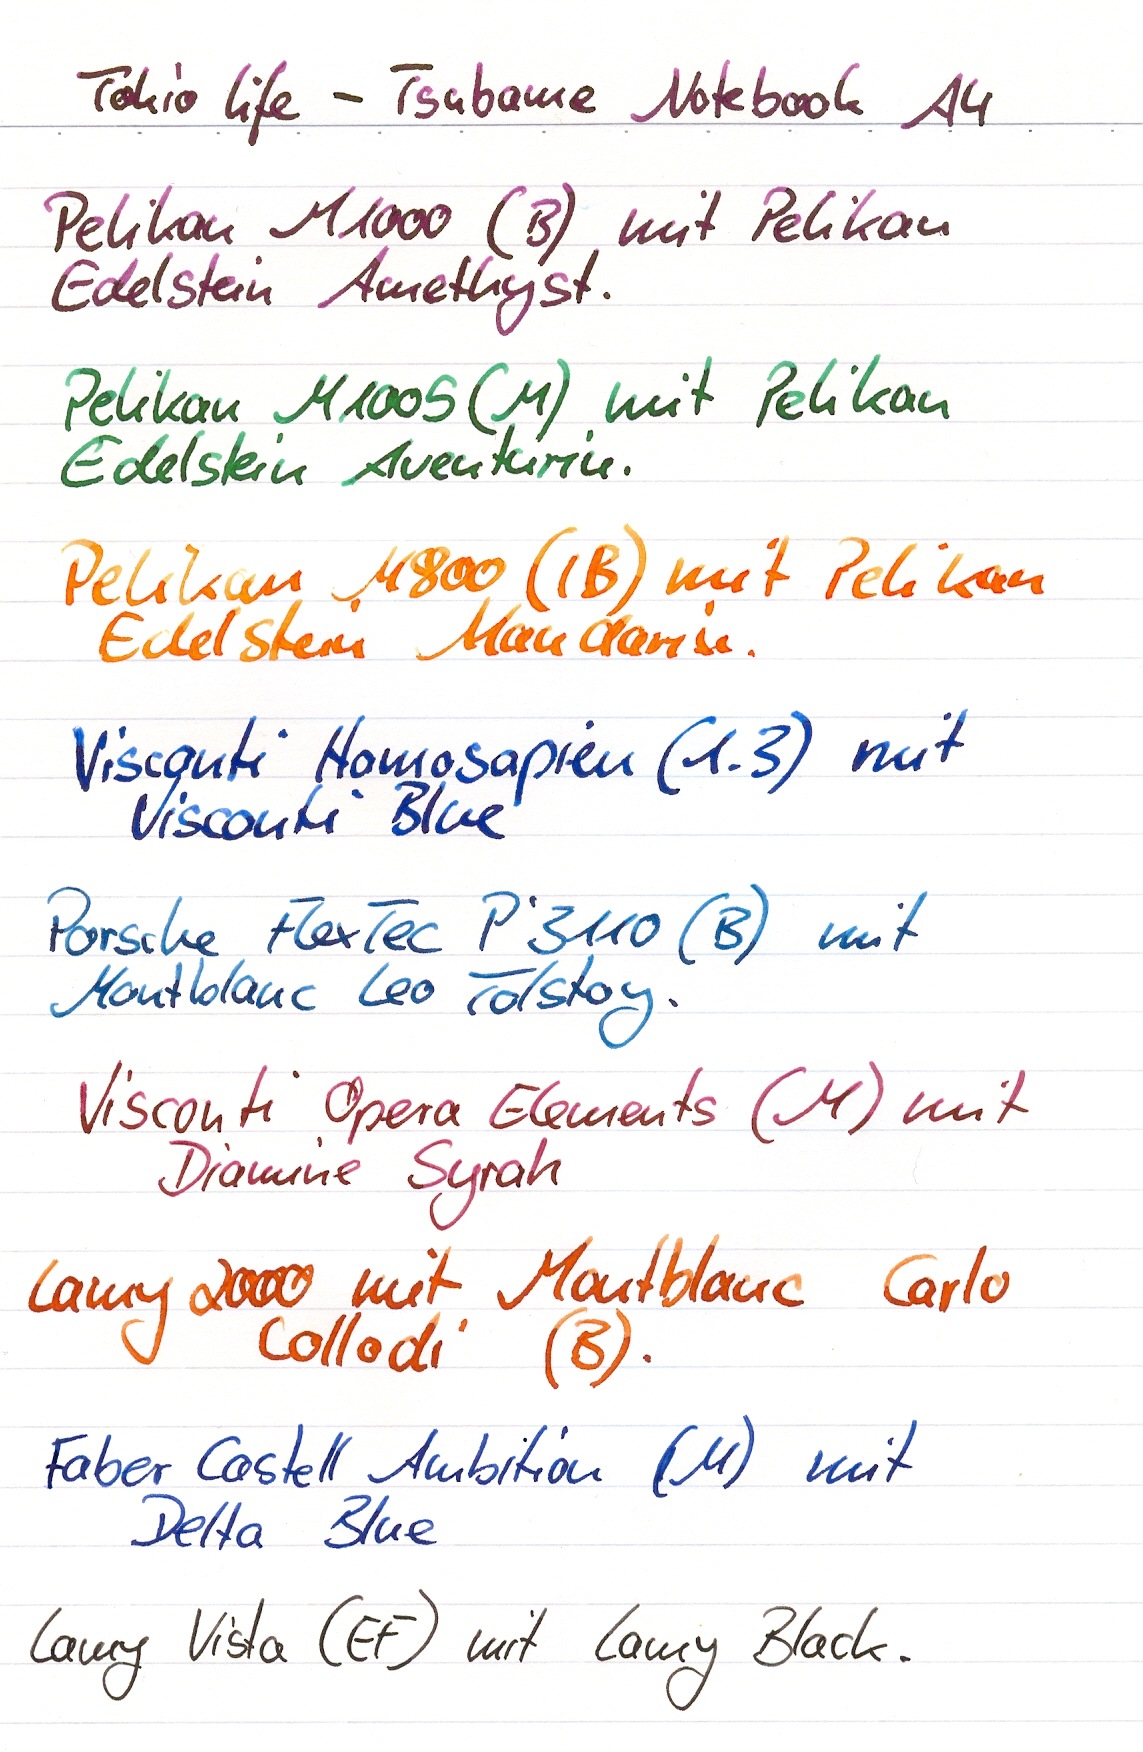 Tokio life - Tsubame Notebook A4
Pelikan M1000 (B) mit Pelikan
Edelstein Amethyst.
Pelikan M1005 (M) mit Pelikan
Edelstein Aventurin.
Pelikan M800 (IB) mit Pelikan
Edelstein Mandarin.
Visconti Homosapien (1.3) mit
Visconti Blue
Porsche FlexTec P'3110 (B) mit
Montblanc Leo Tolstoy.
Visconti Opera Elements (M) mit
Diamine Syrah
Lamy 2000 mit Montblanc Carlo
Collodi (B).
Faber Castell Ambition (M) mit
Delta Blue
Lamy Vista (EF) mit Lamy Black.